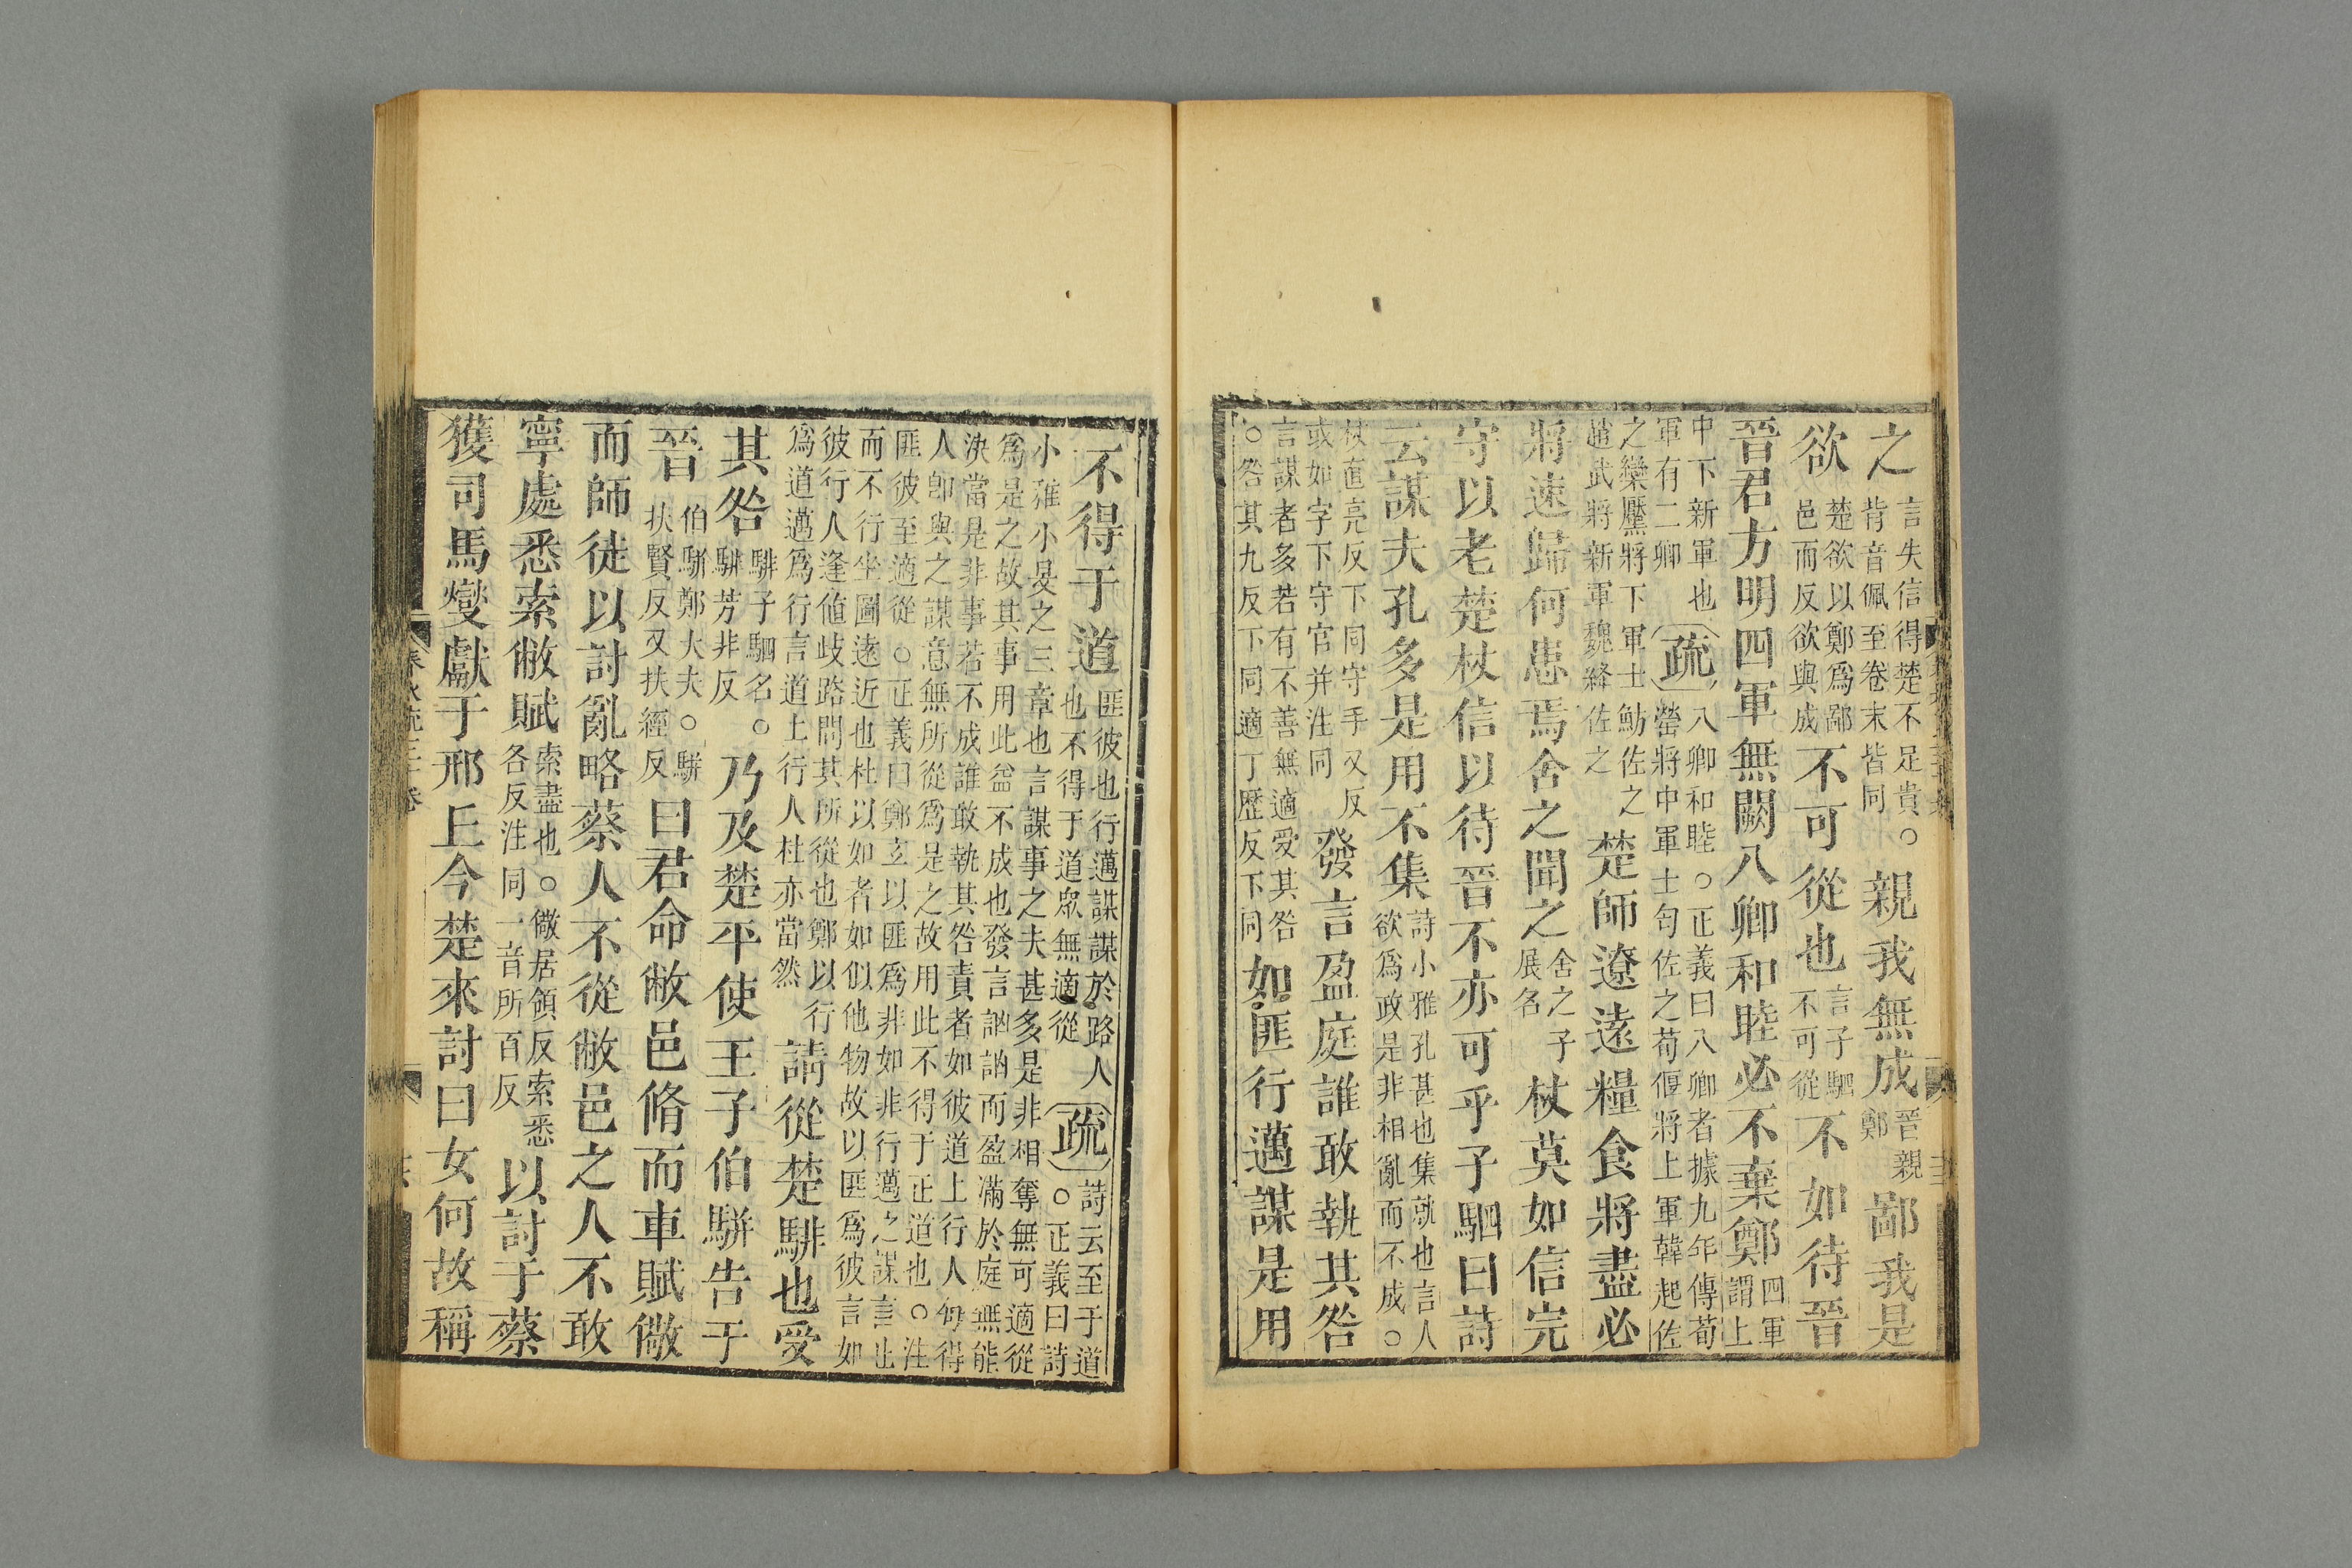 之言失信得楚不足貴○背音佩至卷末皆同親我無成晉親鄭鄙我是
欲楚欲以鄭爲鄙邑而反欲與成不可從也言子駟不可從不如待晉
晉君方明四軍無闕八卿和睦必不棄鄭四軍謂上
中下新軍也軍有二卿疏八卿和睦○正義曰八卿者據九年傳荀罃將中軍士匄佐之荀偃將上軍韓起佐
之欒黶將下軍士魴佐之趙武將新軍魏絳佐之楚師遼遠糧食將盡必
將速歸何患焉舍之聞之舍之子展名杖莫如信完
守以老楚杖信以待晉不亦可乎子駟曰詩
云謀夫孔多是用不集詩小雅孔甚也集就也言人欲爲政是非相亂而不成○
杖直亮反下同守手又反或如字下守官并注同發言盈庭誰敢執其咎
言謀者多若有不善無適受其咎○咎其九反下同適丁歷反下同如匪行邁謀是用
不得于道匪彼也行邁謀謀於路人也不得于道眾無適從疏詩云至于道○正義曰詩
小雅小旻之三章也言謀事之夫甚多是非相奪無可適從
爲是之故其事用此㽞不成也發言訩訩而盈滿於庭無能
決當是非事若不成誰敢執其咎責者如彼道上行人每得
人卽與之謀意無所從爲是之故用此不得于正道也○注
匪彼至適從○正義曰鄭玄以匪爲非如非行邁之謀言止
而不行坐圖遠近也杜以如者如似他物故以匪爲彼言如
彼行人逢値歧路問其所從也鄭以行
爲道邁爲行言道上行人杜亦當然請從楚騑也受
其咎騑子駟名○騑芳非反乃及楚平使王子伯駢告于
晉伯駢鄭大夫○駢扶賢反又扶經反曰君命敝邑脩而車賦儆
而師徒以討亂略蔡人不從敝邑之人不敢
寧處悉索敝賦索盡也○儆居領反索悉各反注同一音所百反以討于蔡
獲司馬燮獻于邢丘今楚來討曰女何故稱